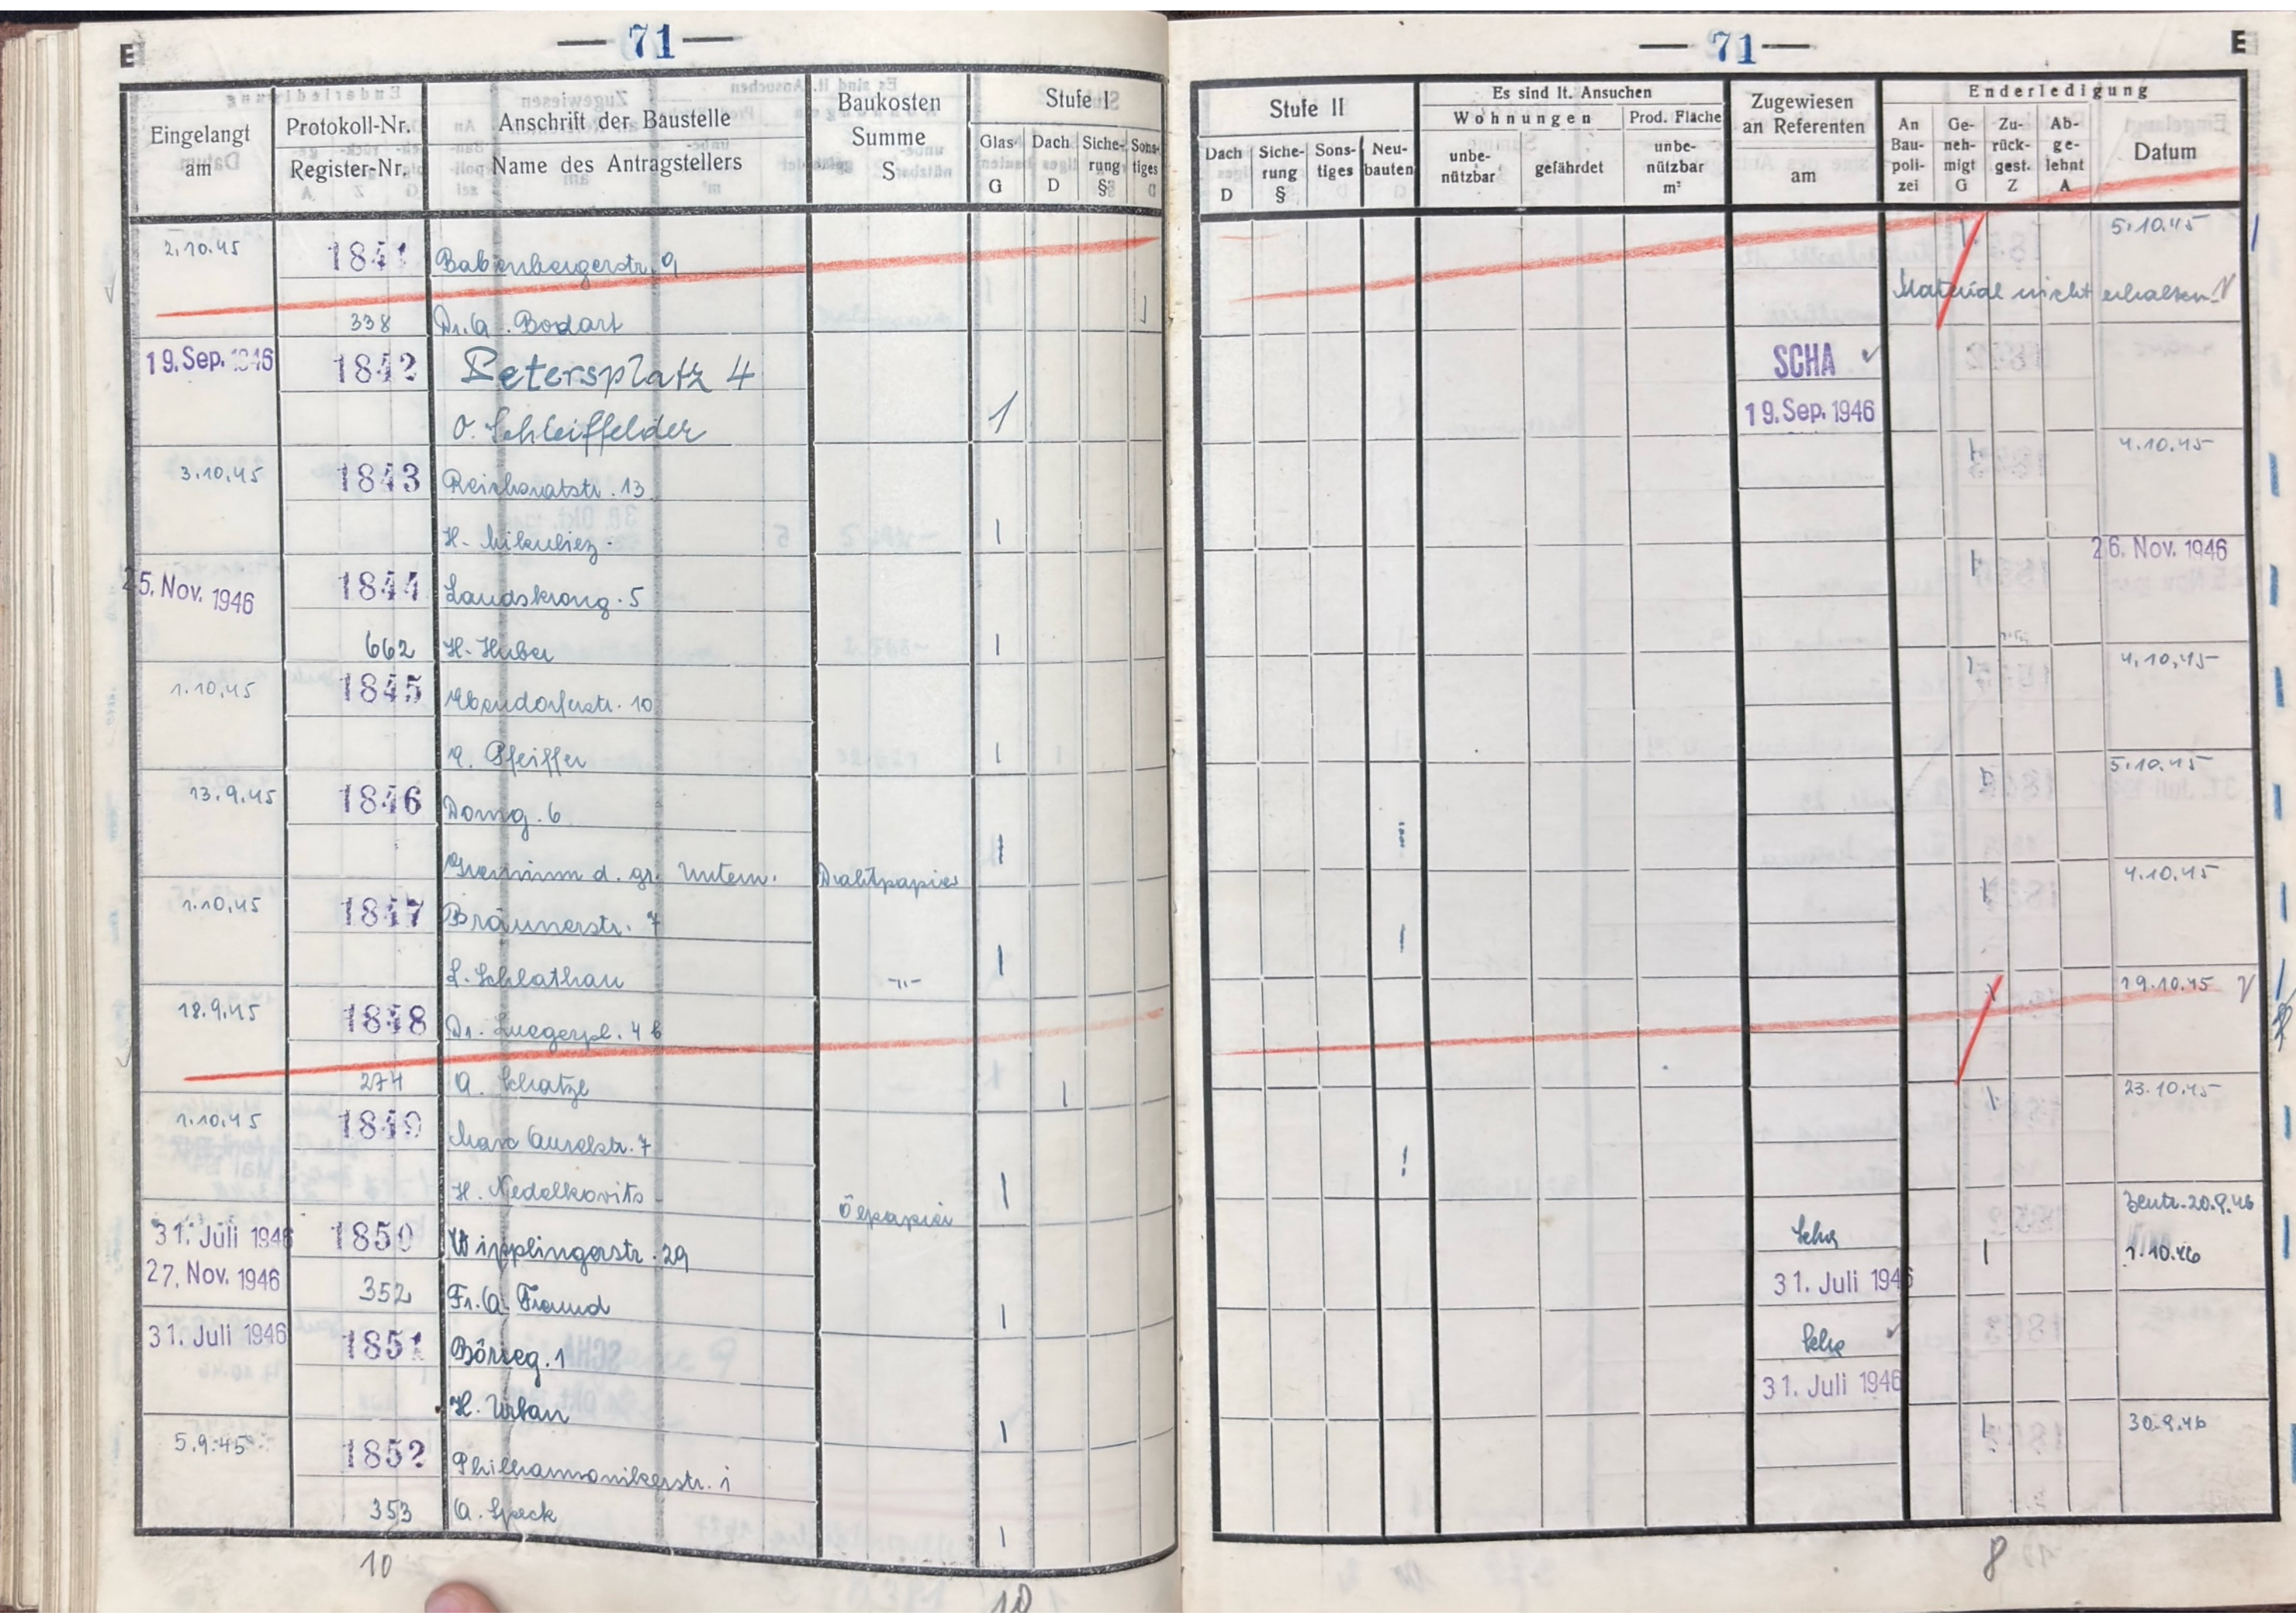 E
— 71 —
Eingelangt am
Protokoll-Nr.
Register-Nr.
Anschrift der Baustelle
Name des Antragstellers
Baukosten Summe S
Stufe I
Glas G
Dach D
Siche-rung §
Sons-tiges
2.10.45 1841 Babenbergerstr. 9
338 Dr. A. Bodart
19. Sep. 1946 1842 Petersplatz 4
O. Schleiffelder 1
3.10.45 1843 Reichsratstr. 13
H. Mikuliez. 1
25. Nov. 1946 1844 Landskrong. 5
662 H. Huber 1
1.10.45 1845 Ebendorferstr. 10
Pfeiffer 1 1
13.9.45 1846 Domg. 6
Gremium d. gr. Untern. Drahtpapier 1
1.10.45 1847 Bräunerstr. 7
L. Schlathau -"- 1
18.9.45 1848 Dr. Luegerpl. 4 b
274 A. Schatze 1
1.10.45 1849 Marc Aurelstr. 7
H. Nedelkovits Ölpapier 1
31. Juli 1946 1850 Wipplingerstr. 29
27. Nov. 1946 352 Fr. A. Freund 1
31. Juli 1946 1851 Börseg. 1
H. Urban 1
5.9.45 1852 Philharmonikerstr. 1
353 A. Speck 1
10 10
— 71 —
E
Stufe II
Dach D
Siche-rung §
Sons-tiges
Neu-bauten
Es sind lt. Ansuchen
Wohnungen
unbe-nützbar
gefährdet
Prod. Fläche
unbe-nützbar m²
Zugewiesen an Referenten
am
Enderledigung
An Bau-poli-zei
Ge-neh-migt G
Zu-rück-gest. Z
Ab-ge-lehnt A
Datum
5.10.45
Material nicht erhalten
SCHA
19. Sep. 1946
1 4.10.45
1 26. Nov. 1946
1 4.10.45
1 5.10.45
1 1 4.10.45
1 19.10.45
1 1 23.10.45
Scha Zentr. 20.9.46
31. Juli 1946 1 1.10.46
Scha
31. Juli 1946
1 30.9.46
8